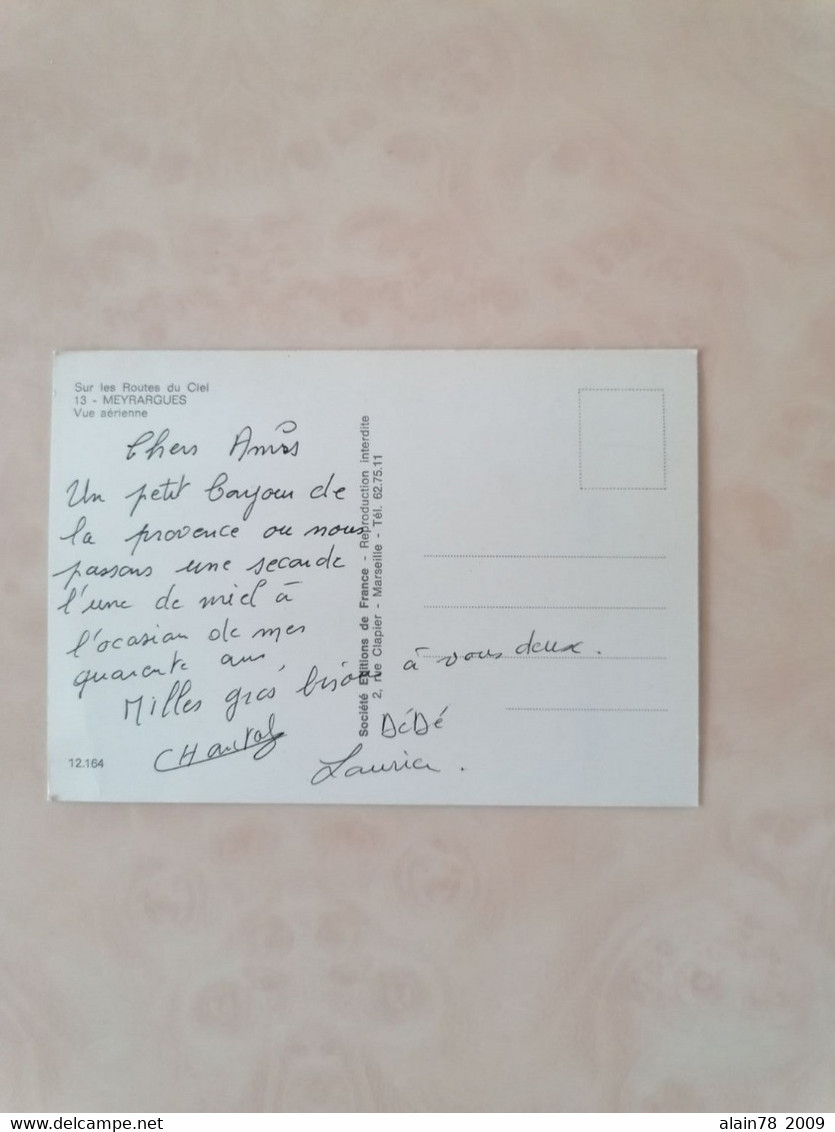 Sur les Routes du Ciel
13 - MEYRARGUES
Vue aérienne
Chers Amis
Un petit bonjour de
la provence ou nous
passons une seconde
l'une de miel à
l'ocasion de mes
quarente ans,
Milles gros bisous à vous deux.
CHantal
DéDé
Lauria.
12.164
Société Editions de France - Reproduction interdite
2, rue Clapier - Marseille - Tél. 62.75.11
www.delcampe.net
alain78_2009